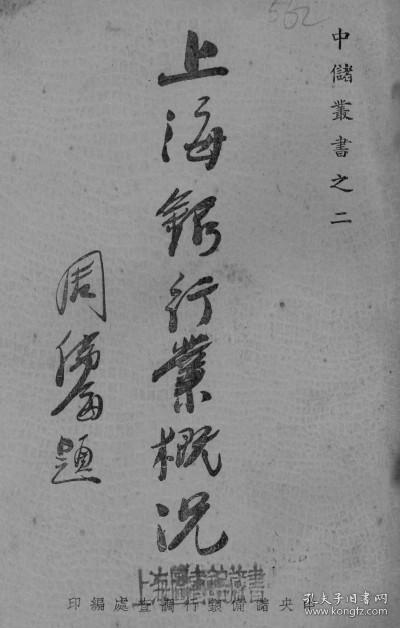 562
中儲叢書之二
上海銀行業概況
周佛海題
上海圖書館藏書
中央儲備銀行調查處編印
孔夫子旧书网
www.kongfz.com